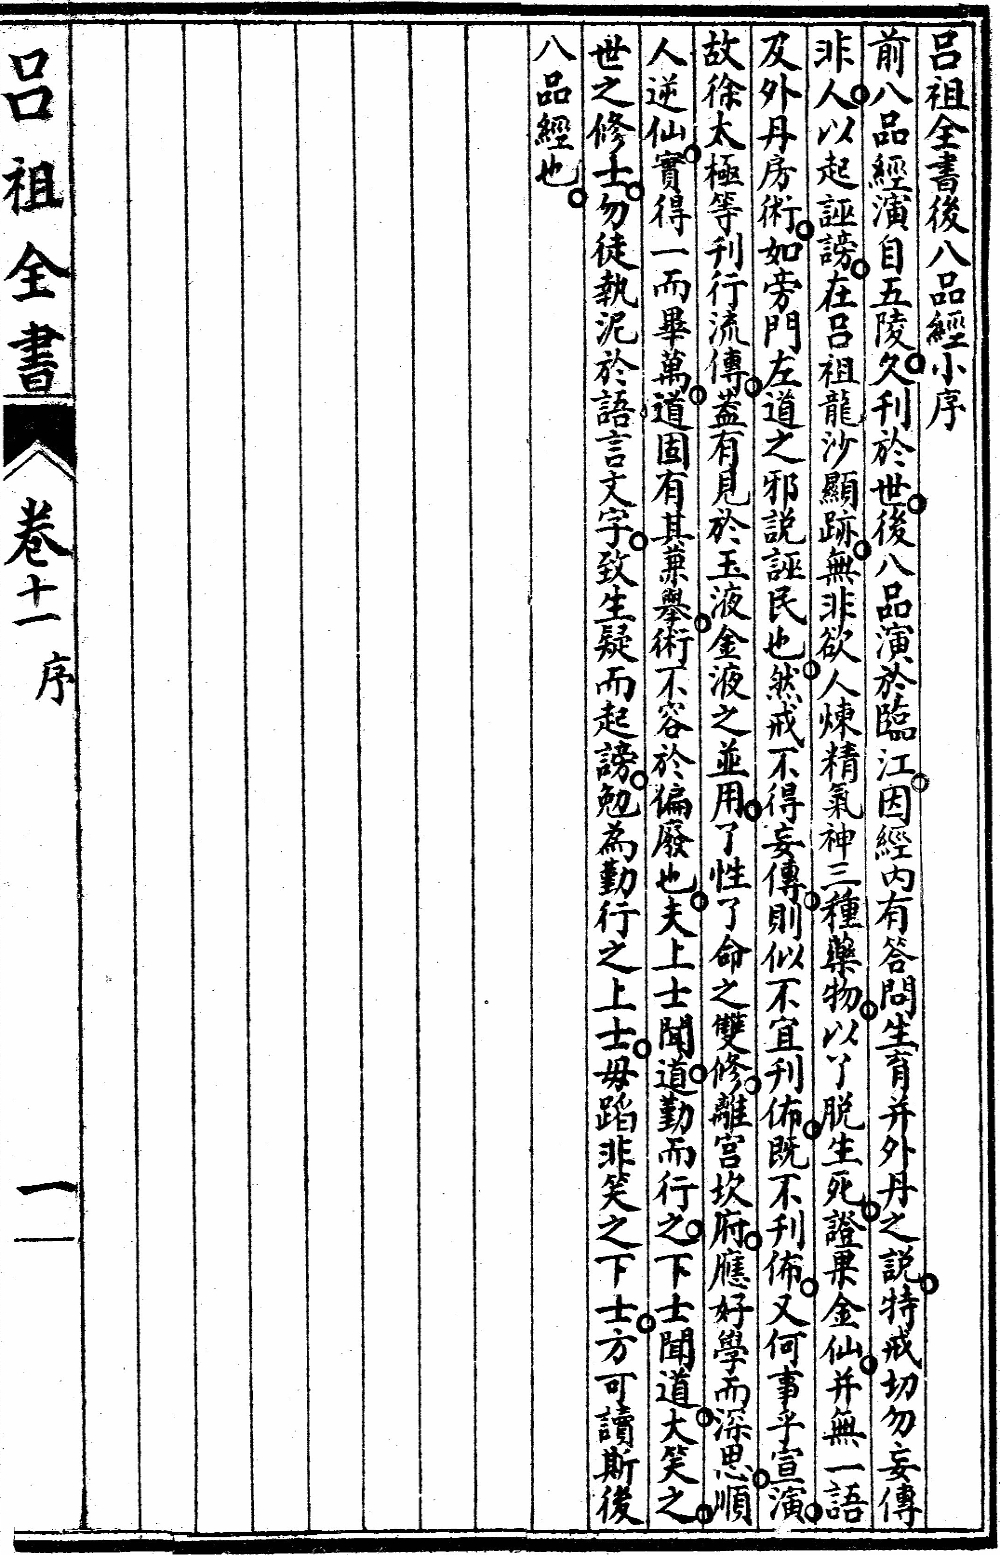 呂祖全書後八品經小序
前八品經演自五陵久刊於世後八品演於臨江因經內有答問生育并外丹之説特戒切勿妄傳
非人以起誣謗在呂祖龍沙顯跡無非欲人煉精氣神三種藥物以了脱生死證果金仙并無一語
及外丹房術如旁門左道之邪説誣民也然戒不得妄傳則似不宜刊佈既不刊佈又何事乎宣演
故徐太極等刊行流傳葢有見於玉液金液之並用了性了命之雙修離宮坎府應好學而深思順
人逆仙實得一而畢萬道固有其兼舉術不容於偏廢也夫上士聞道勤而行之下士聞道大笑之
世之修士勿徒執泥於語言文字致生疑而起謗勉為勤行之上士毋蹈非笑之下士方可讀斯後
八品經也
呂祖全書
卷十一 序
一